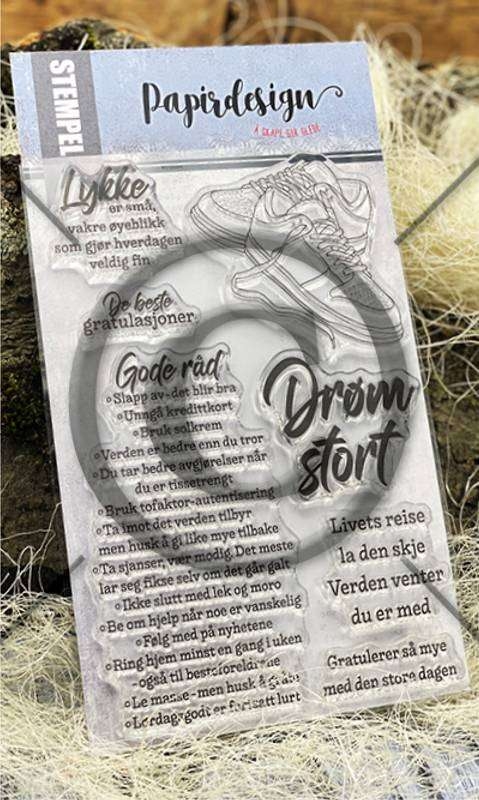 STEMPEL
Papirdesign
Å SKAPE GIR GLEDE
Lykke
er små,
vakre øyeblikk
som gjør hverdagen
veldig fin
De beste
gratulasjoner
Gode råd
Slapp av - det blir bra
Unngå kredittkort
Bruk solkrem
Verden er bedre enn du tror
Du tar bedre avgjørelser når
du er tissetrengt
Bruk tofaktor-autentisering
Ta imot det verden tilbyr
men husk å gi like mye tilbake
Ta sjanser, vær modig. Det meste
lar seg fikse selv om det går galt
Ikke slutt med lek og moro
Be om hjelp når noe er vanskelig
Følg med på nyhetene
Ring hjem minst en gang i uken
-også til besteforeldrene
Le masse - men husk å
Lørdagsgodt er fortsatt lurt
Drøm
stort
Livets reise
la den skje
Verden venter
du er med
Gratulerer så mye
med den store dagen